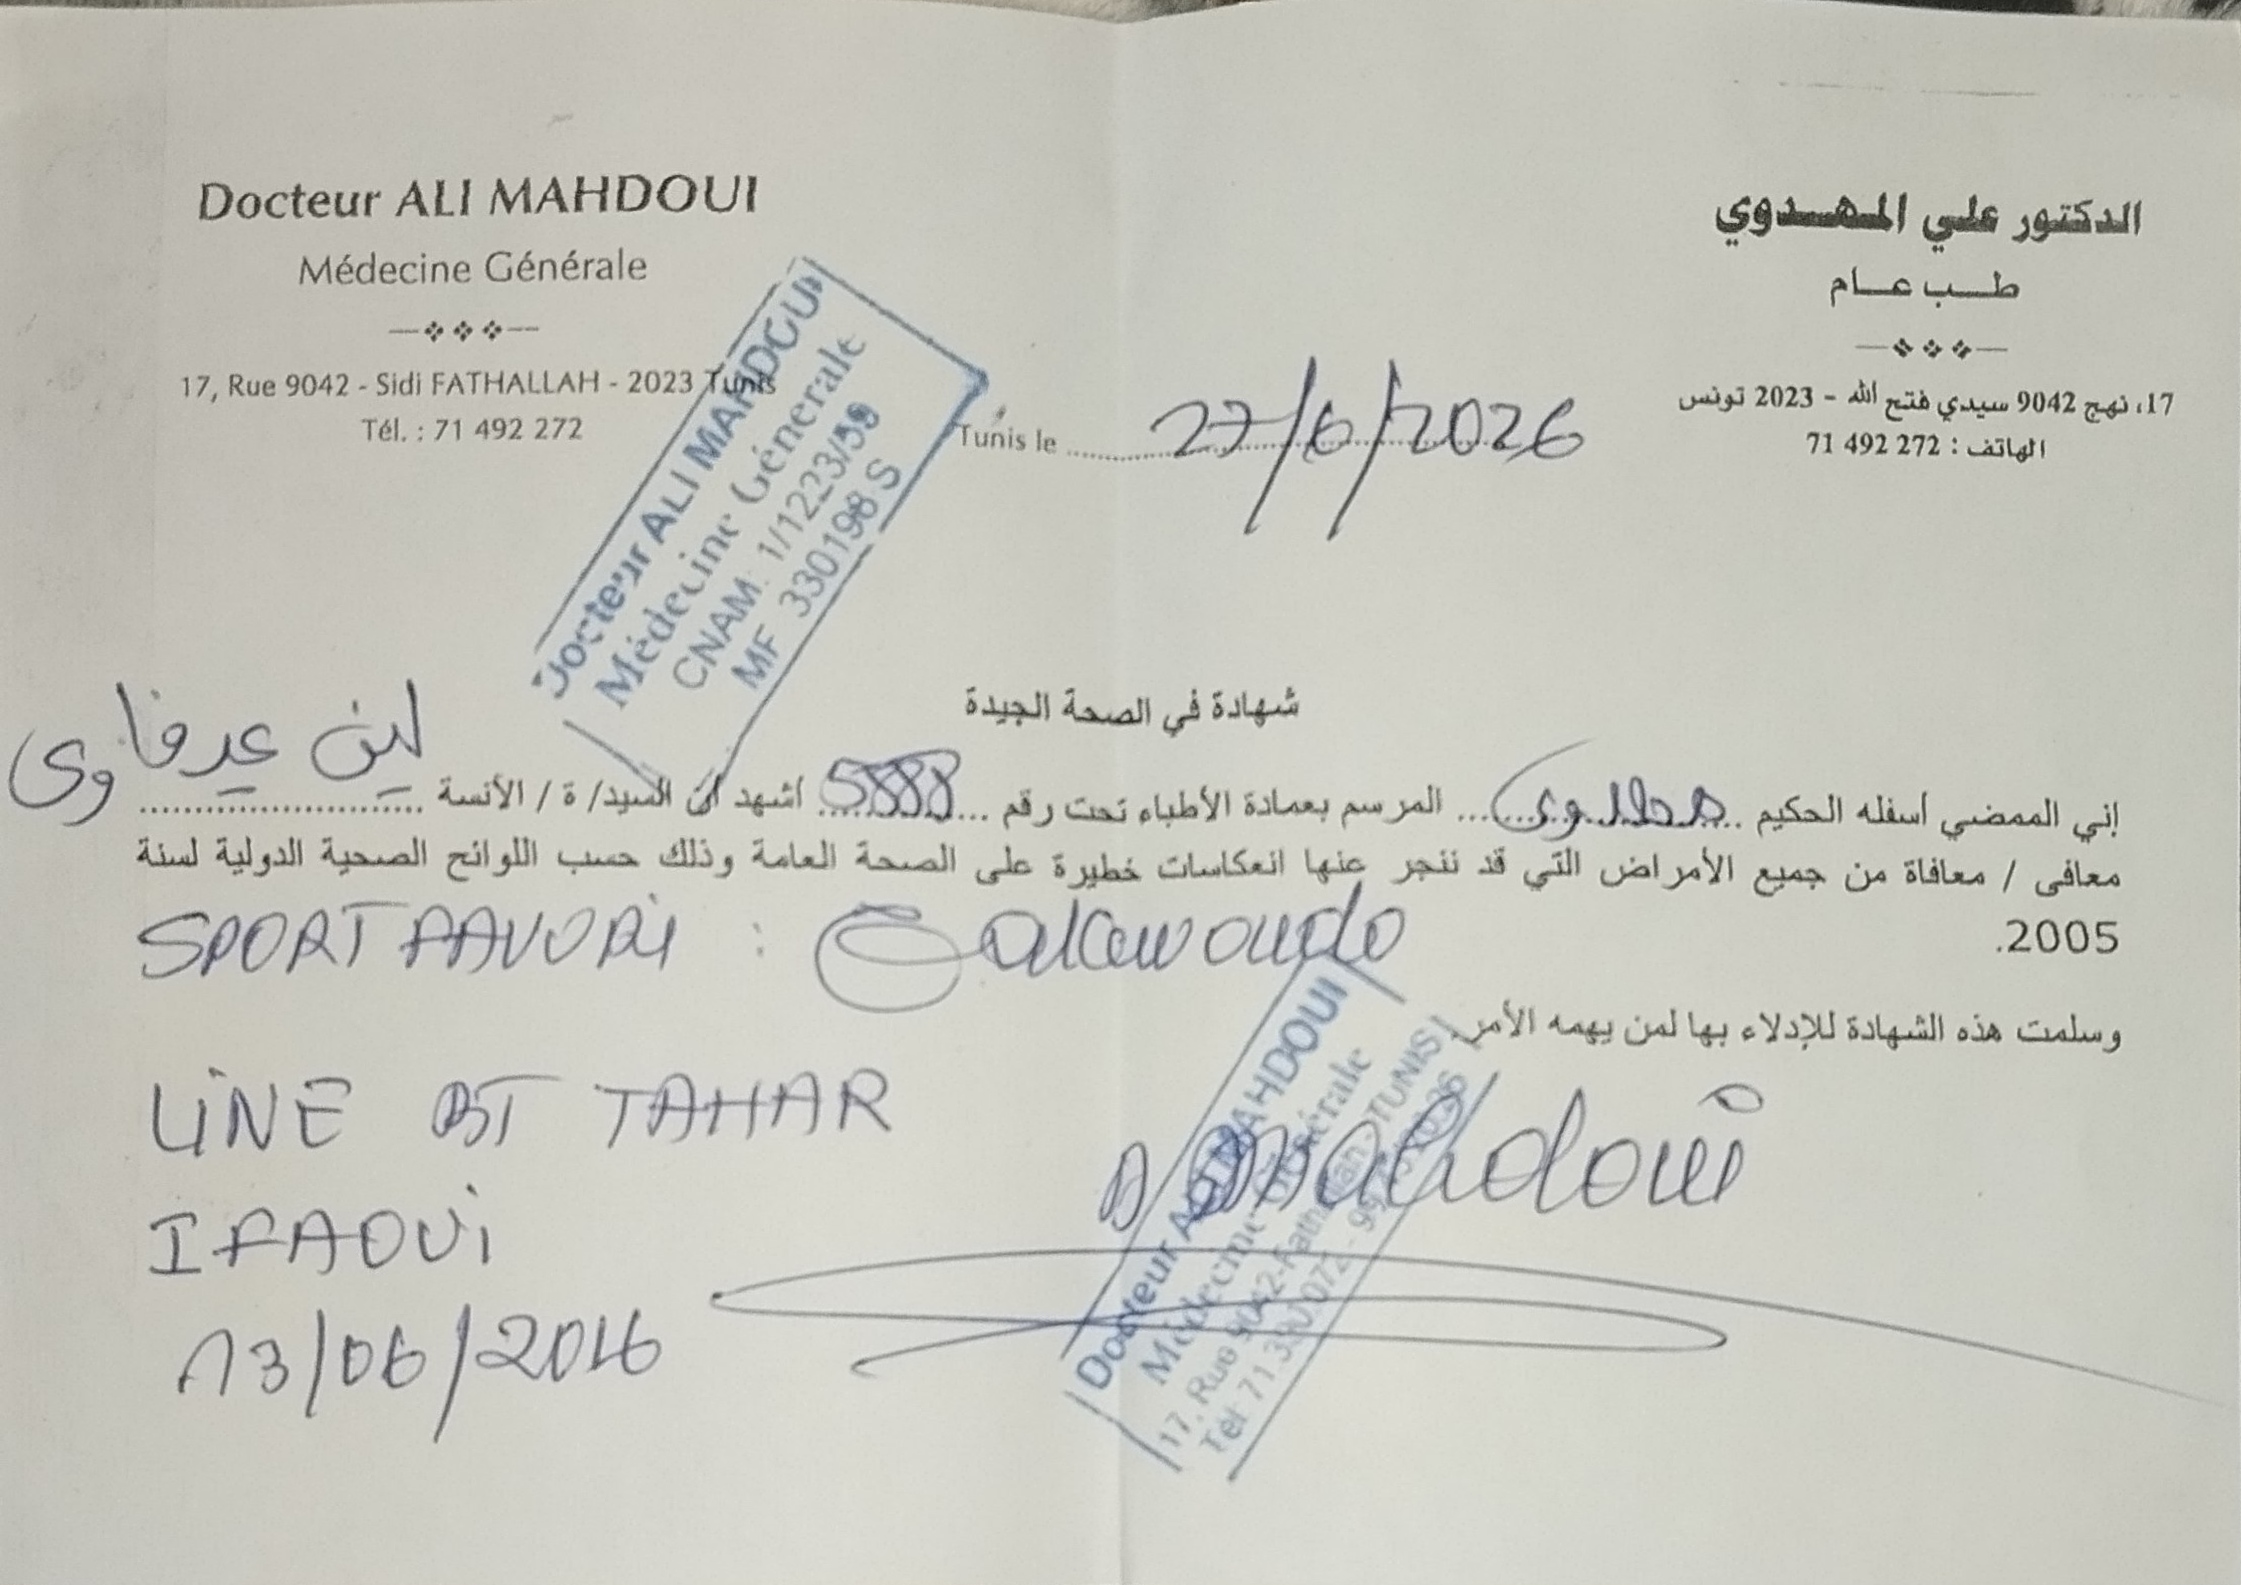 Docteur ALI MAHDOUI
Médecine Générale
17, Rue 9042 - Sidi FATHALLAH - 2023 Tunis
Tél. : 71 492 272
الدكتور علي المهدوي
طب عام
17، نهج 9042 سيدي فتح الله - 2023 تونس
الهاتف : 272 492 71
Docteur ALI MAHDOUI
Médecine Générale
CNAM: 1/1223/59
MF 330198 S
Tunis le 27/6/2026
شهادة في الصحة الجيدة
إني الممضي أسفله الحكيم المرسم بعمادة الأطباء تحت رقم أشهد أن السيد/ ة / الأنسة لين عرفاوي
معافى / معافاة من جميع الأمراض التي قد ننجر عنها انعكاسات خطيرة على الصحة العامة وذلك حسب اللوائح الصحية الدولية لسنة
2005.
SPORT FAVORI :
وسلمت هذه الشهادة للإدلاء بها لمن يهمه الأمر.
LINE BT TAHAR
IFAOUI
13/06/2016
Mahdoui
Docteur ALI MAHDOUI
Médecine Générale
17, Rue 9042-Fathallah-TUNIS